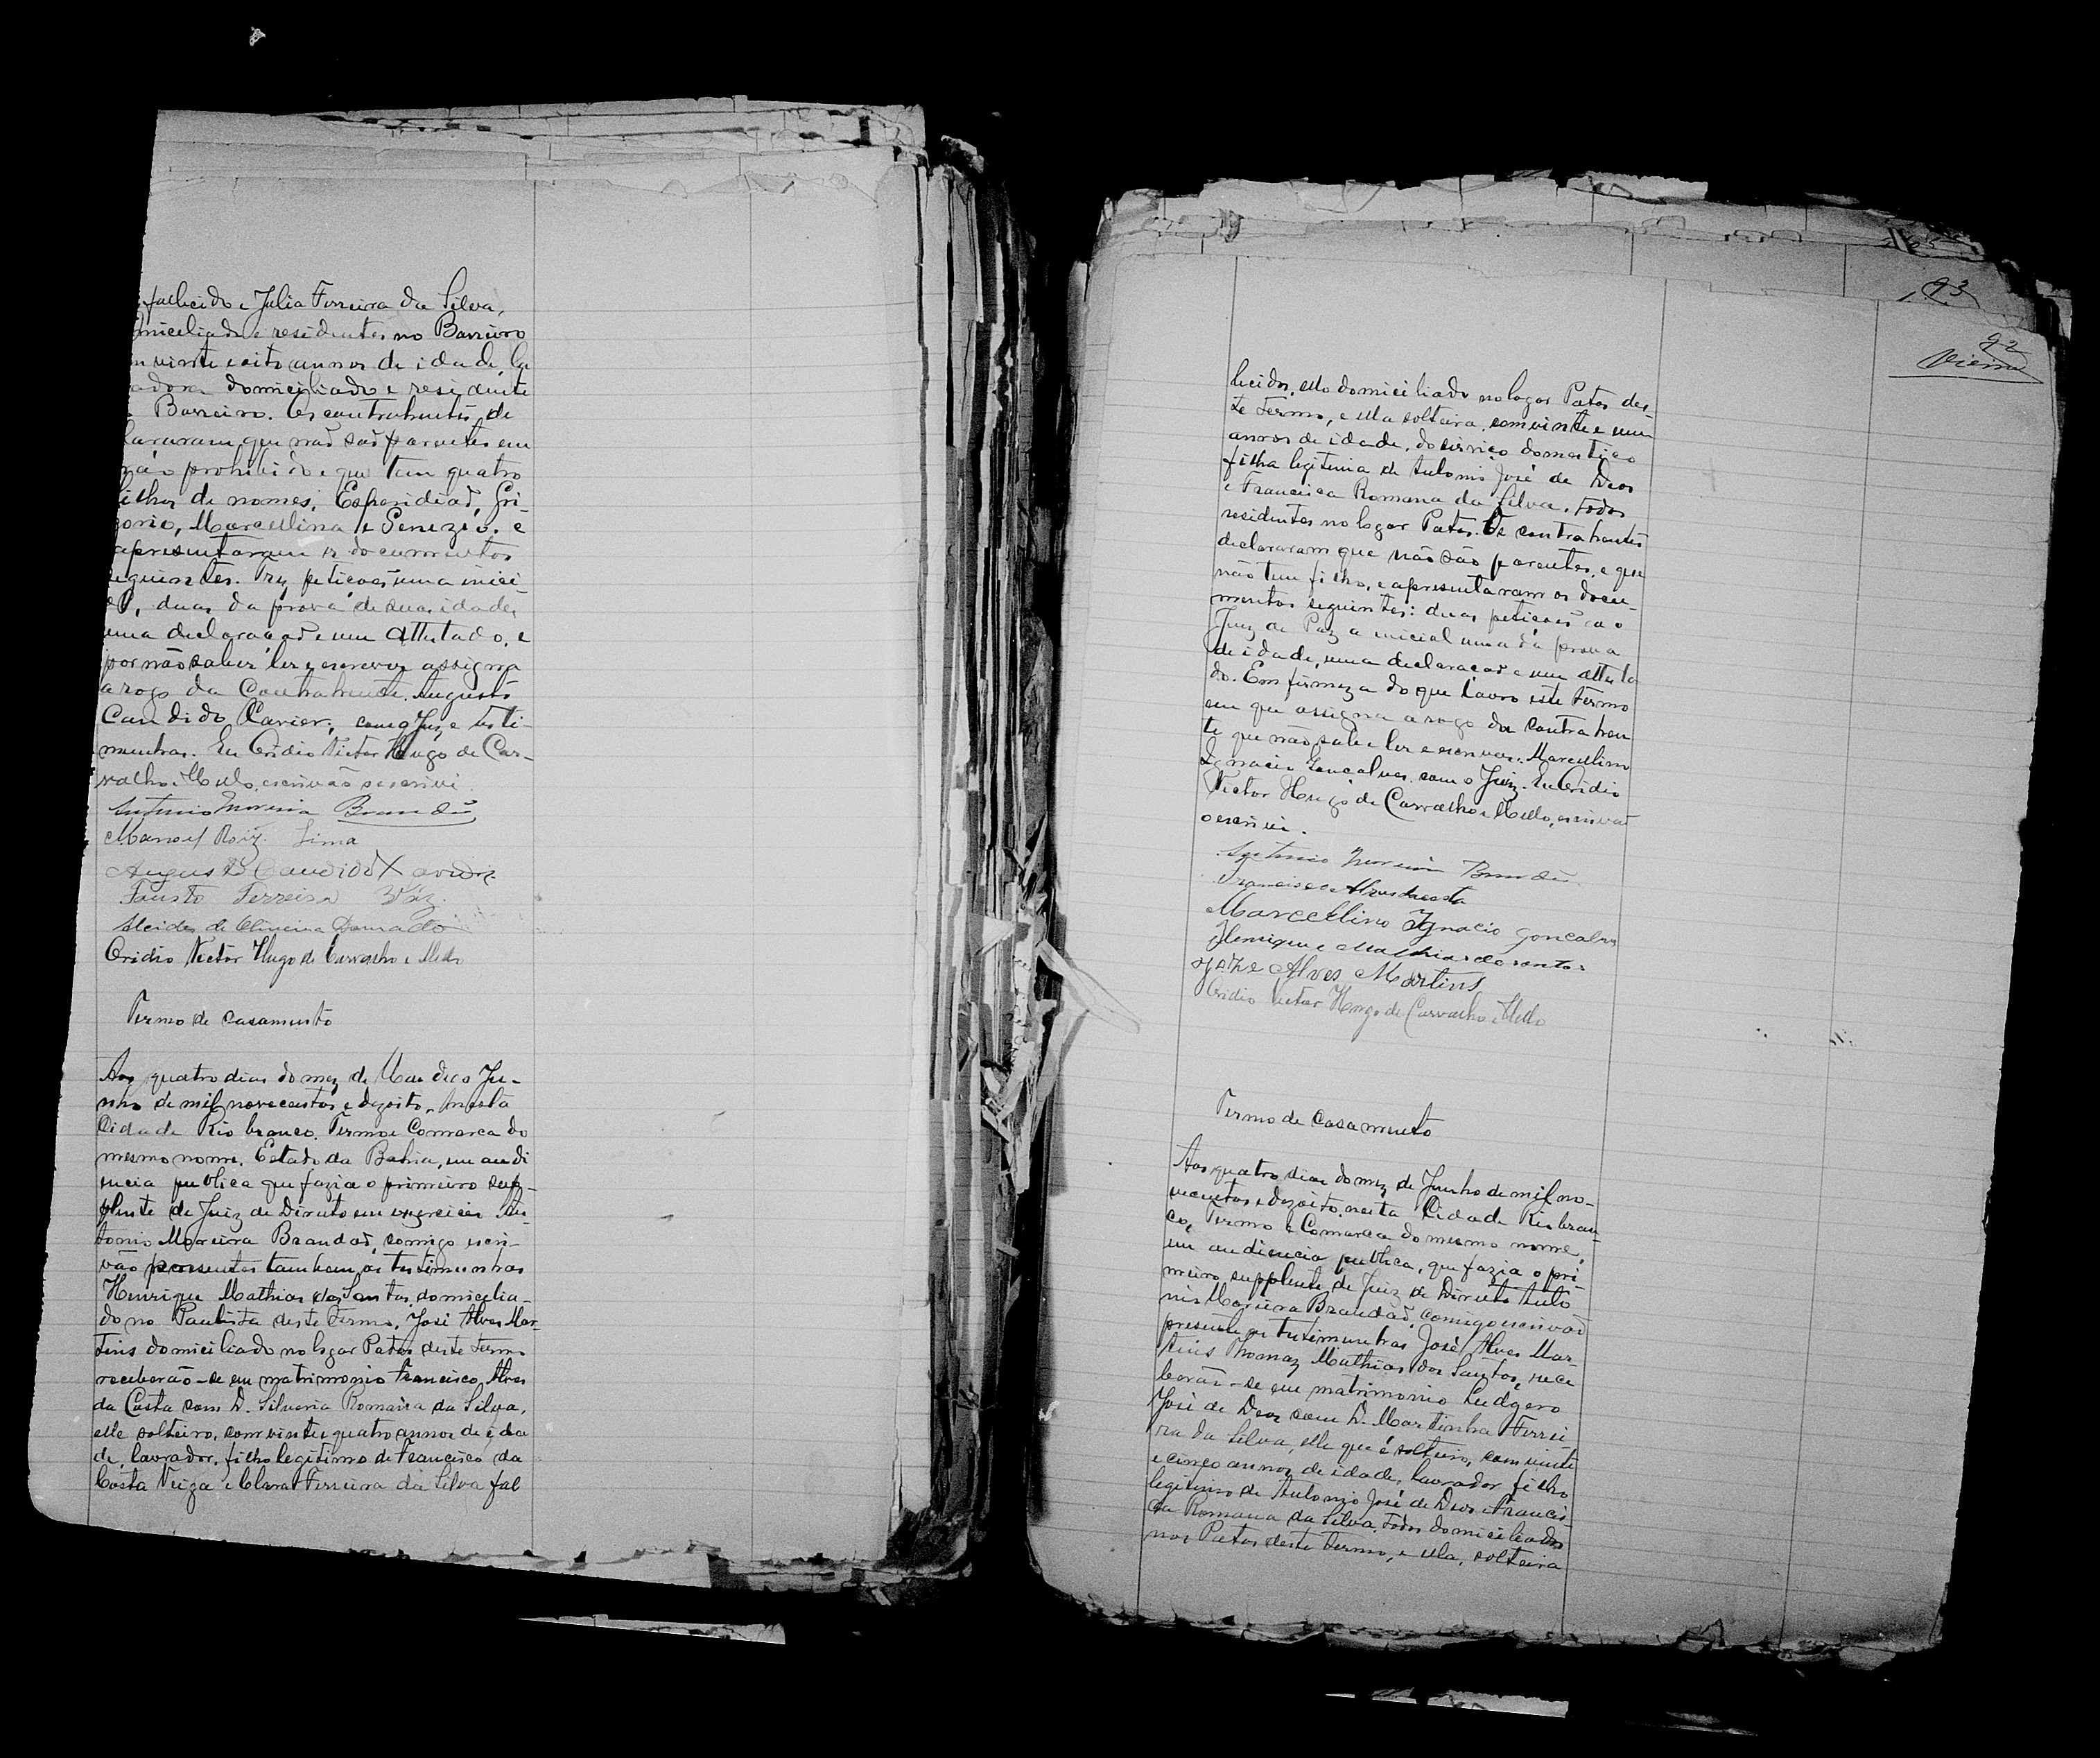 fallecido e Julia Ferreira da Silva,
miciliados e residentes no Barreiro
m vinte e oito annos de idade, la
adora domiciliado e residente
Barreiro. Os contrahentes de
lararam que não são parentes em
ráo prohibido e que tem quatro
ilhos de nomes, Esperidião, Gri-
gorio, Marcellina e Genezio. e
apresentaram os documentos
eguintes. Trez petições uma inici
al, duas da prova de suas idades
uma declaração e um attestado. e
por não saber ler e escrever assigna
a rogo da Contrahente. Augusto
Candido Xavier, com o Juiz e teste-
munhas. Eu Ovidio Victor Hugo de Car-
valho e Mello, escrivão o escrivi.
Antonio Moreira Brandão
Manoel Roiz Lima
Augusto Candido Xavier
Fausto Ferreira Vaz.
Alcides de Oliveira Dourado
Ovidio Victor Hugo de Carvalho e Mello
Termo de casamento
Aos quatro dias do mez de Maio digo Ju-
nho de mil novecentos e dezoito, nesta
Cidade Rio branco. Termo e Comarca do
mesmo nome. Estado da Bahia, em audi
encia publica que fazia o primeiro sup-
plente de Juiz de Direito em exercicio An-
tonio Moreira Brandão, comigo escri-
vão presentes tambem as testemunhas
Henrique Mathias dos Santos domicilia-
do no Paulista deste Termo, José Alves Mar-
tins domiciliado no logar Patos deste termo
receberão-se em matrimonio Francisco Alves
da Costa com D. Silveria Romana da Silva,
elle solteiro, com vinte quatro annos de ida
de, lavrador, filho legitimo de Francisco da
Costa Veiga e Clara Ferreira da Silva fal
93
92
Vianna
lecidos, elle domiciliado no logar Patos des-
te termo, e ella solteira, com vinte e um
annos de idade, do serviço domestico
filha legitima de Antonio José de Deos
e Francisca Romana da Silva. todos
residentes no logar Patos. Os contrahentes
declararam que não são parentes, e que
não tem filho, e apresentaram os docu-
mentos seguintes: duas petições ao
Juiz de Paz a inicial uma da prova
de idade, uma declaração e um attesta
do. Em firmeza do que lavro este termo
em que assigna a rogo da contrahen
te que não sabe ler e escrever. Marcellino
Ignacio Gonçalves, com o Juiz. Eu Ovidio
Victor Hugo de Carvalho e Mello, escrivão
o escrivi.
Antonio Moreira Brandão
Francisco Alves da Costa
Marcellino Ignacio Goncalves
Henrique Mathias dos santos
José Alves Martins
Ovidio Victor Hugo de Carvalho e Mello
Termo de casamento
Aos quatro dias do mez de Junho de mil no-
vecentos e dezoito, nesta Cidade Rio bran-
co, Termo e Comarca do mesmo nome,
em audiencia publica, que fazia o pri-
meiro supplente de Juiz de Direito Anto
nio Moreira Brandão, comigo escrivão
presente as testemunhas José Alves Mar-
tins Thomaz Mathias dos Santos, rece
berão-se em matrimonio Ludgero
José de Deos com D. Martinha Ferrei-
ra da Silva, elle que é solteiro, com vinte
e cinco annos de idade, lavrador filho
legitimo de Antonio José de Deos e Francis-
ca Romana da Silva. todos domiciliados
nos Patos deste termo, e ella, solteira